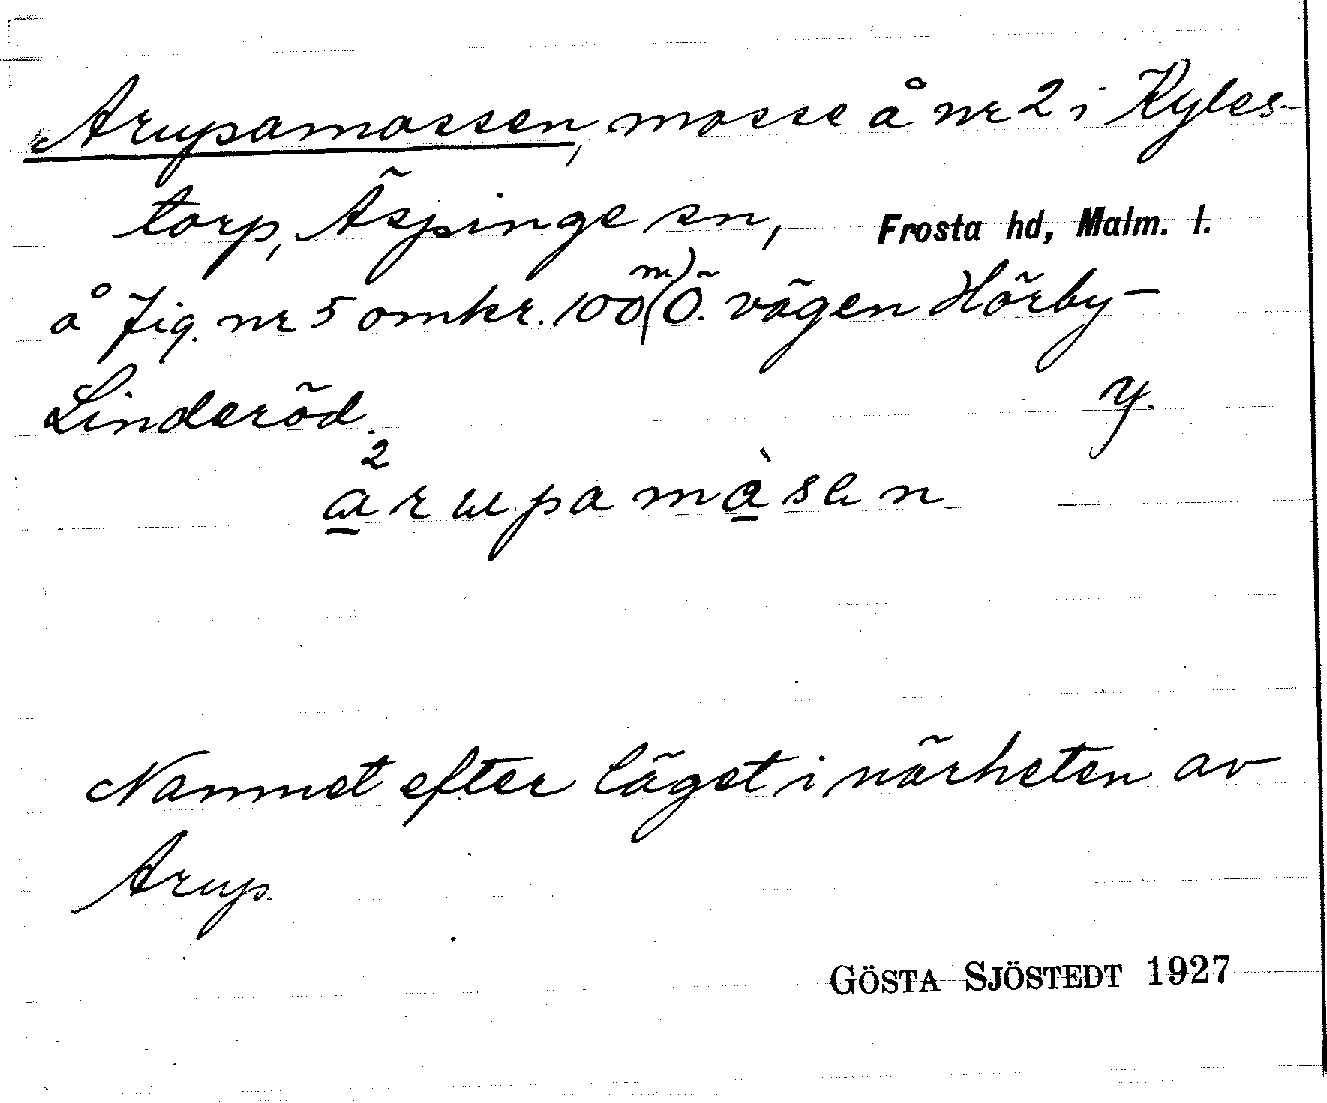 Arupamossen, mosse å nr 2 i Kyles-
torp, Äspinge sn, Frosta hd, Malm. l.
å Fig. nr 5 omkr. 100 m (Ö. vägen Hörby-
Linderöd.
arupamåsen
Namnet efter läget i närheten av
Arup.
GÖSTA SJÖSTEDT 1927